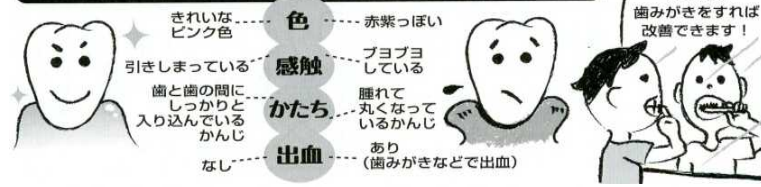 きれいな
ピンク色
色
赤紫っぽい
引きしまっている
感触
ブヨブヨ
している
歯と歯の間に
しっかりと
入り込んでいる
かんじ
かたち
腫れて
丸くなって
いるかんじ
なし
出血
あり
（歯みがきなどで出血）
歯みがきをすれば
改善できます！